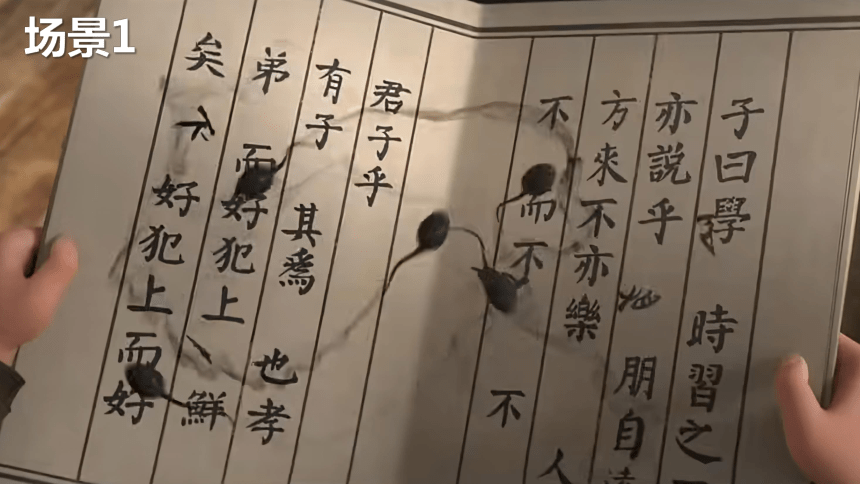 场景1
子曰學時習之
亦說乎朋自
方來不亦樂人
不而不不
君子乎
有子其爲也孝
弟而好犯上鮮
矣不好犯上而好